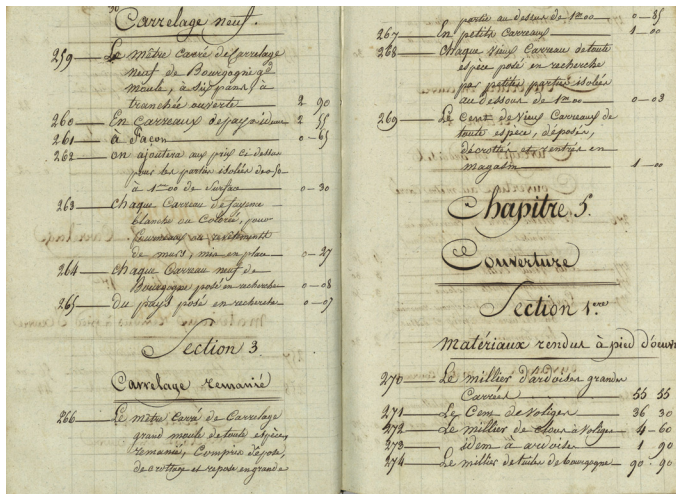 Carrelage neuf.
259 — Le mètre carré de Carrelage
neuf de Bourgogne gd
moule, à six pans, à
tranchée ouverte 2 90
260 — En Carreaux de pays idem 2 55
261 — à Façon 0-65
262 — on ajoutera aux prix ci dessus
pour les parties isolées de 0-50
à 1m00 de Surface 0-30
263 — Chaque Carreau de fayence
blanche ou Colorié, pour
fourneaux ou revêtements
de murs, mis en place 0-27
264 — Chaque Carreau neuf de
Bourgogne posé en recherche 0-08
265 — du pays posé en recherche 0-07
Section 3.
Carrelage remanié
266 — Le mètre Carré de Carrelage
grand moule de toute espèce,
remanié, Compris dépose,
decrottage et repose en grande
partie au dessus de 1m00 0-85
267 — En petits Carreaux 1-00
268 — Chaque Vieux Carreau de toute
espèce posé en recherche
par petites parties isolées
au dessous de 1m00 0-03
269 — Le Cent de Vieux Carreaux de
toute espèce, déposés,
décrottés et rentrés en
magasin 1-00
Chapitre 5.
Couverture
Section 1.ere
Matériaux rendus à pied d'oeuvre
270 — Le millier d'ardoises grandes
Carrées 55 55
271 — Le Cent de Voliges 36 30
272 — Le millier de Clous à Voliges 4-60
273 — idem à ardoise 1 90
274 — Le millier de tuiles de bourgogne 90.90